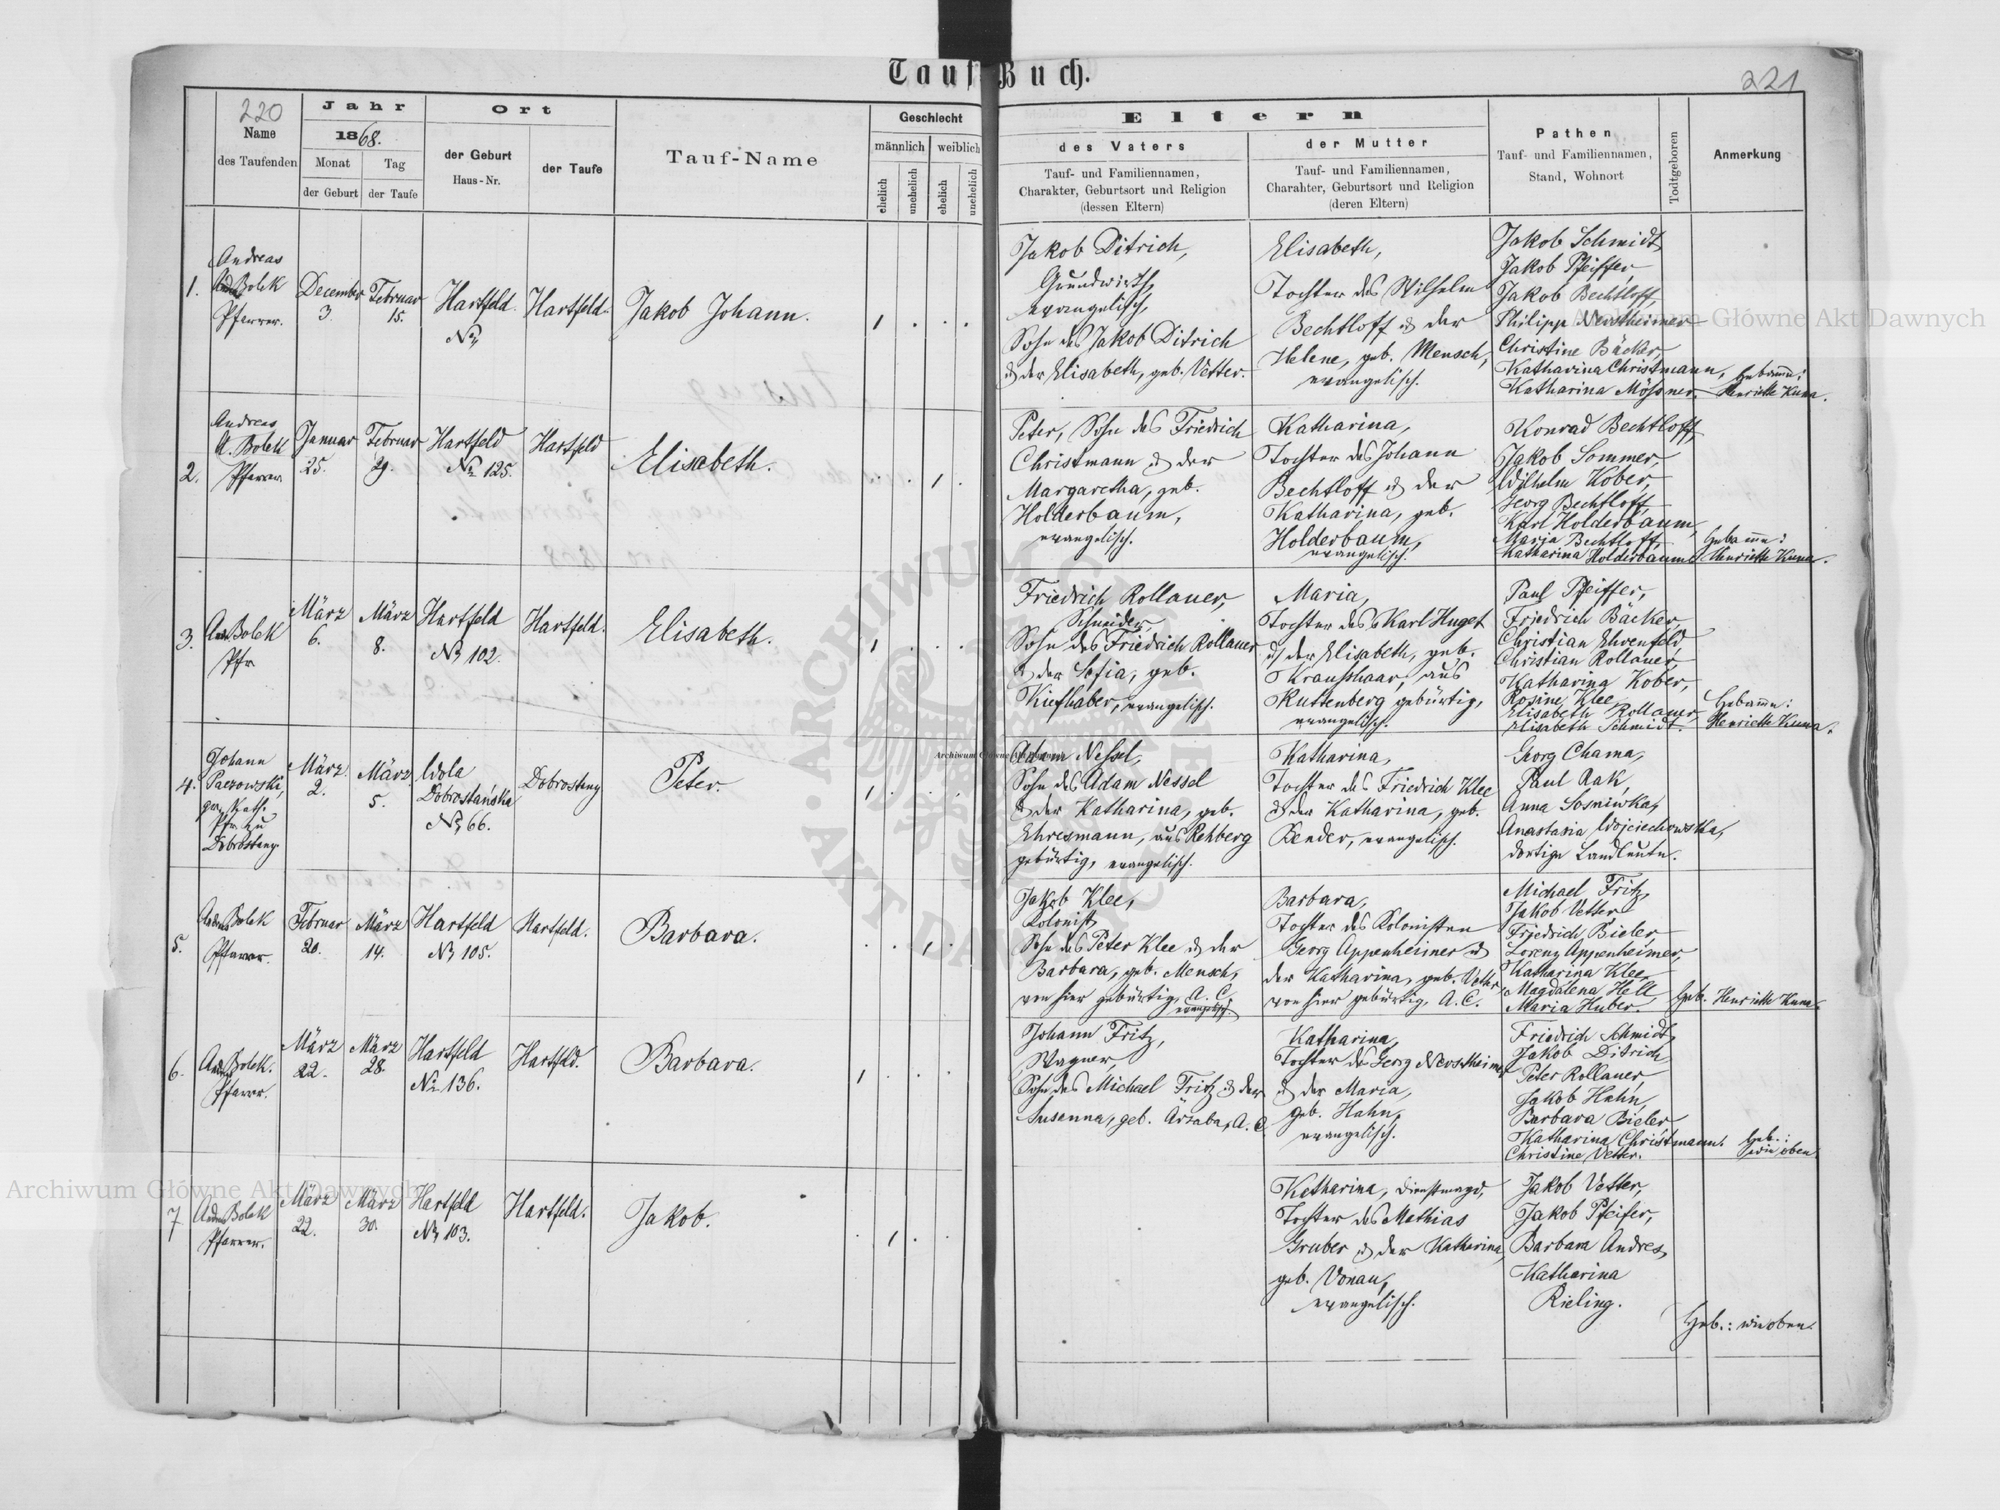 Tauf-Buch.
220
221
Name
des Taufenden
Jahr
1868.
Monat
der Geburt
Tag
der Taufe
Ort
der Geburt
Haus-Nr.
der Taufe
Tauf-Name
Geschlecht
männlich
weiblich
ehelich
unehelich
ehelich
unehelich
Eltern
des Vaters
Tauf- und Familiennamen,
Charakter, Geburtsort und Religion
(dessen Eltern)
der Mutter
Tauf- und Familiennamen,
Charahter, Geburtsort und Religion
(deren Eltern)
Pathen
Tauf- und Familiennamen,
Stand, Wohnort
Todtgeboren
Anmerkung
1.
Andreas
Bolek
Pfarrer.
December
3.
Februar
15.
Hartfeld.
No
Hartfeld.
Jakob Johann.
1
Jakob Ditrich,
Grundwirth,
evangelisch,
Sohn des Jakob Ditrich
& der Elisabeth, geb. Vetter.
Elisabeth,
Tochter des Wilhelm
Bechtloff & der
Helene, geb. Mensch,
evangelisch.
Jakob Schmidt
Jakob Pfeiffer,
Jakob Bechtloff,
Philipp
Christine Bäcker,
Katharina Christmann,
Katharina Mössner.
Hebamme:
Henriette Kuna.
2.
Andreas
A. Bolek
Pfarrer
Januar
25.
Februar
29.
Hartfeld
No 125.
Hartfeld
Elisabeth.
1
Peter, Sohn des Friedrich
Christmann & der
Margaretha, geb.
Holderbaum,
evangelisch.
Katharina,
Tochter des Johann
Bechtloff & der
Katharina, geb.
Holderbaum,
evangelisch.
Konrad Bechtloff,
Jakob Sommer,
Wilhelm Kober,
Georg Bechtloff,
Karl Holderbaum,
Maria Bechtloff,
Katharina Holderbaum
Hebamme:
Henriette Kuna.
3.
Bolek
Pfr
März
6.
März
8.
Hartfeld
No 102.
Hartfeld.
Elisabeth.
1
Friedrich Rollauer,
Schneider,
Sohn des Friedrich Rollauer
& der Sofia, geb.
Kiefhaber, evangelisch.
Maria,
Tochter des Karl Huget
& der Elisabeth, geb.
Kraushaar, aus
Ruttenberg gebürtig,
evangelisch.
Paul Pfeiffer,
Friedrich Bäcker,
Christian Ehrenfeld
Christian Rollauer,
Katharina Kober,
Rosine Klee,
Elisabeth Rollauer,
Elisabeth Schmidt.
Hebamme:
Henriette Kuna.
4.
Johann
Pfr. zu
Dobrostany
März
2.
März
5.
Wola
Dobrostańska
No 66.
Dobrostany
Peter.
1
Adam Nessel,
Sohn des Adam Nessel
& der Katharina, geb.
Ehresmann, aus Rehberg
gebürtig, evangelisch.
Katharina,
Tochter des Friedrich Klee
& der Katharina, geb.
evangelisch.
Georg Chama,
Paul Rak,
Anna Sosniwka,
Anastasia Wojciechowska,
dortige Landleute.
5.
Bolek
Pfarrer.
Februar
20.
März
14.
Hartfeld
No 105.
Hartfeld.
Barbara.
1
Jakob Klee,
Kolonist,
Sohn des Peter Klee & der
Barbara, geb. Mensch,
von hier gebürtig, A. C.
evangelisch
Barbara,
Tochter des Kolonisten
Georg Appenheimer &
der Katharina, geb. Vetter,
von hier gebürtig, A. C.
Michael Fritz,
Jakob Vetter
Friedrich Bieler,
Lorenz Appenheimer,
Katharina Klee,
Magdalena Hell
Maria Huber.
Heb. Henriette Kuna.
6.
Bolek.
Pfarrer.
März
22.
März
28.
Hartfeld
No 136.
Hartfeld.
Barbara.
1
Johann Fritz,
Wagner,
Sohn des Michael Fritz & der
Susanna, geb. A. C.
Katharina,
Tochter des Georg
& der Maria,
geb. Hahn,
evangelisch.
Friedrich Schmidt,
Jakob Ditrich,
Peter Rollauer,
Jakob Hahn,
Barbara Bieler
Katharina Christmann.
Christine Vetter.
Heb.:
wie oben.
7
Bolek
Pfarrer.
März
22.
März
30.
Hartfeld
No 103.
Hartfeld.
Jakob.
1
Katharina, Dienstmagd,
Tochter des Mathias
Gruber & der Katharina,
geb. Vonau,
evangelisch.
Jakob Vetter,
Jakob Pfeifer,
Barbara Andres,
Katharina
Rieling.
Heb.: wie oben.
Archiwum Główne Akt Dawnych
Archiwum Główne Akt Dawnych